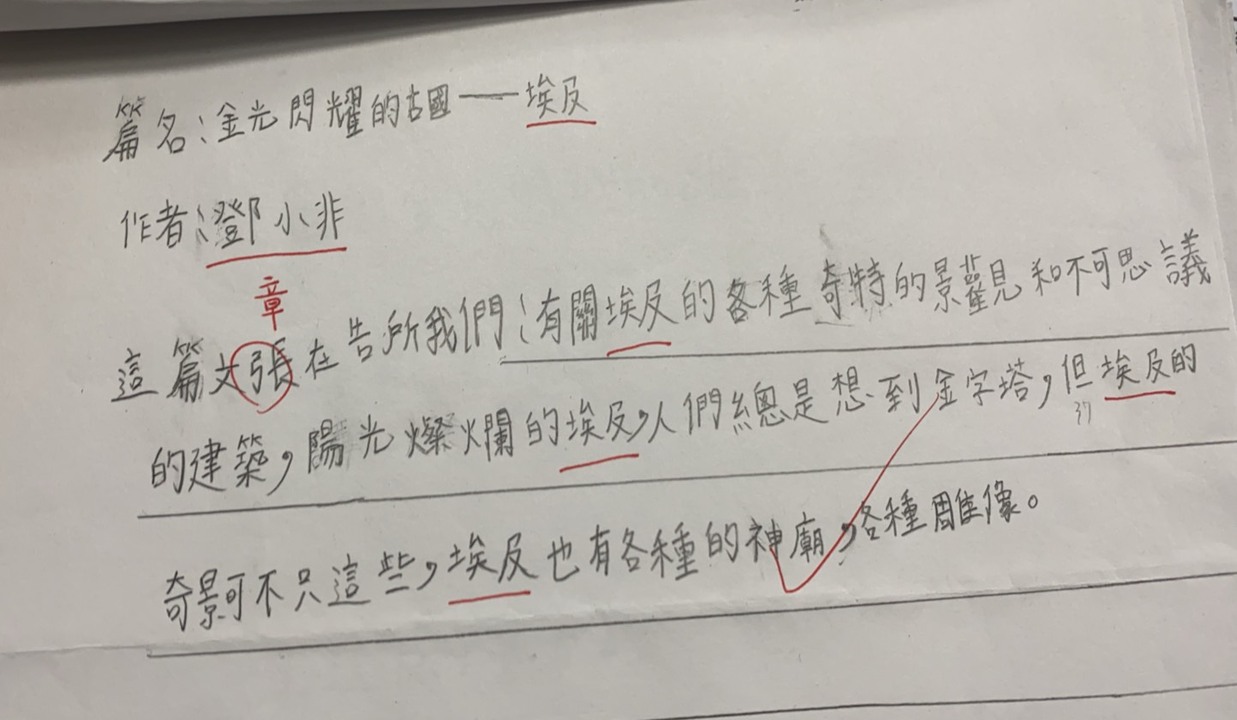 篇名:金光閃耀的古國——埃及
作者:鄧小非
章
這篇文張在告所我們:有關埃及的各種奇特的景觀和不可思議
的建築,陽光燦爛的埃及,人們總是想到金字塔,但埃及的
奇景可不只這些,埃及也有各種的神廟,各種雕像。